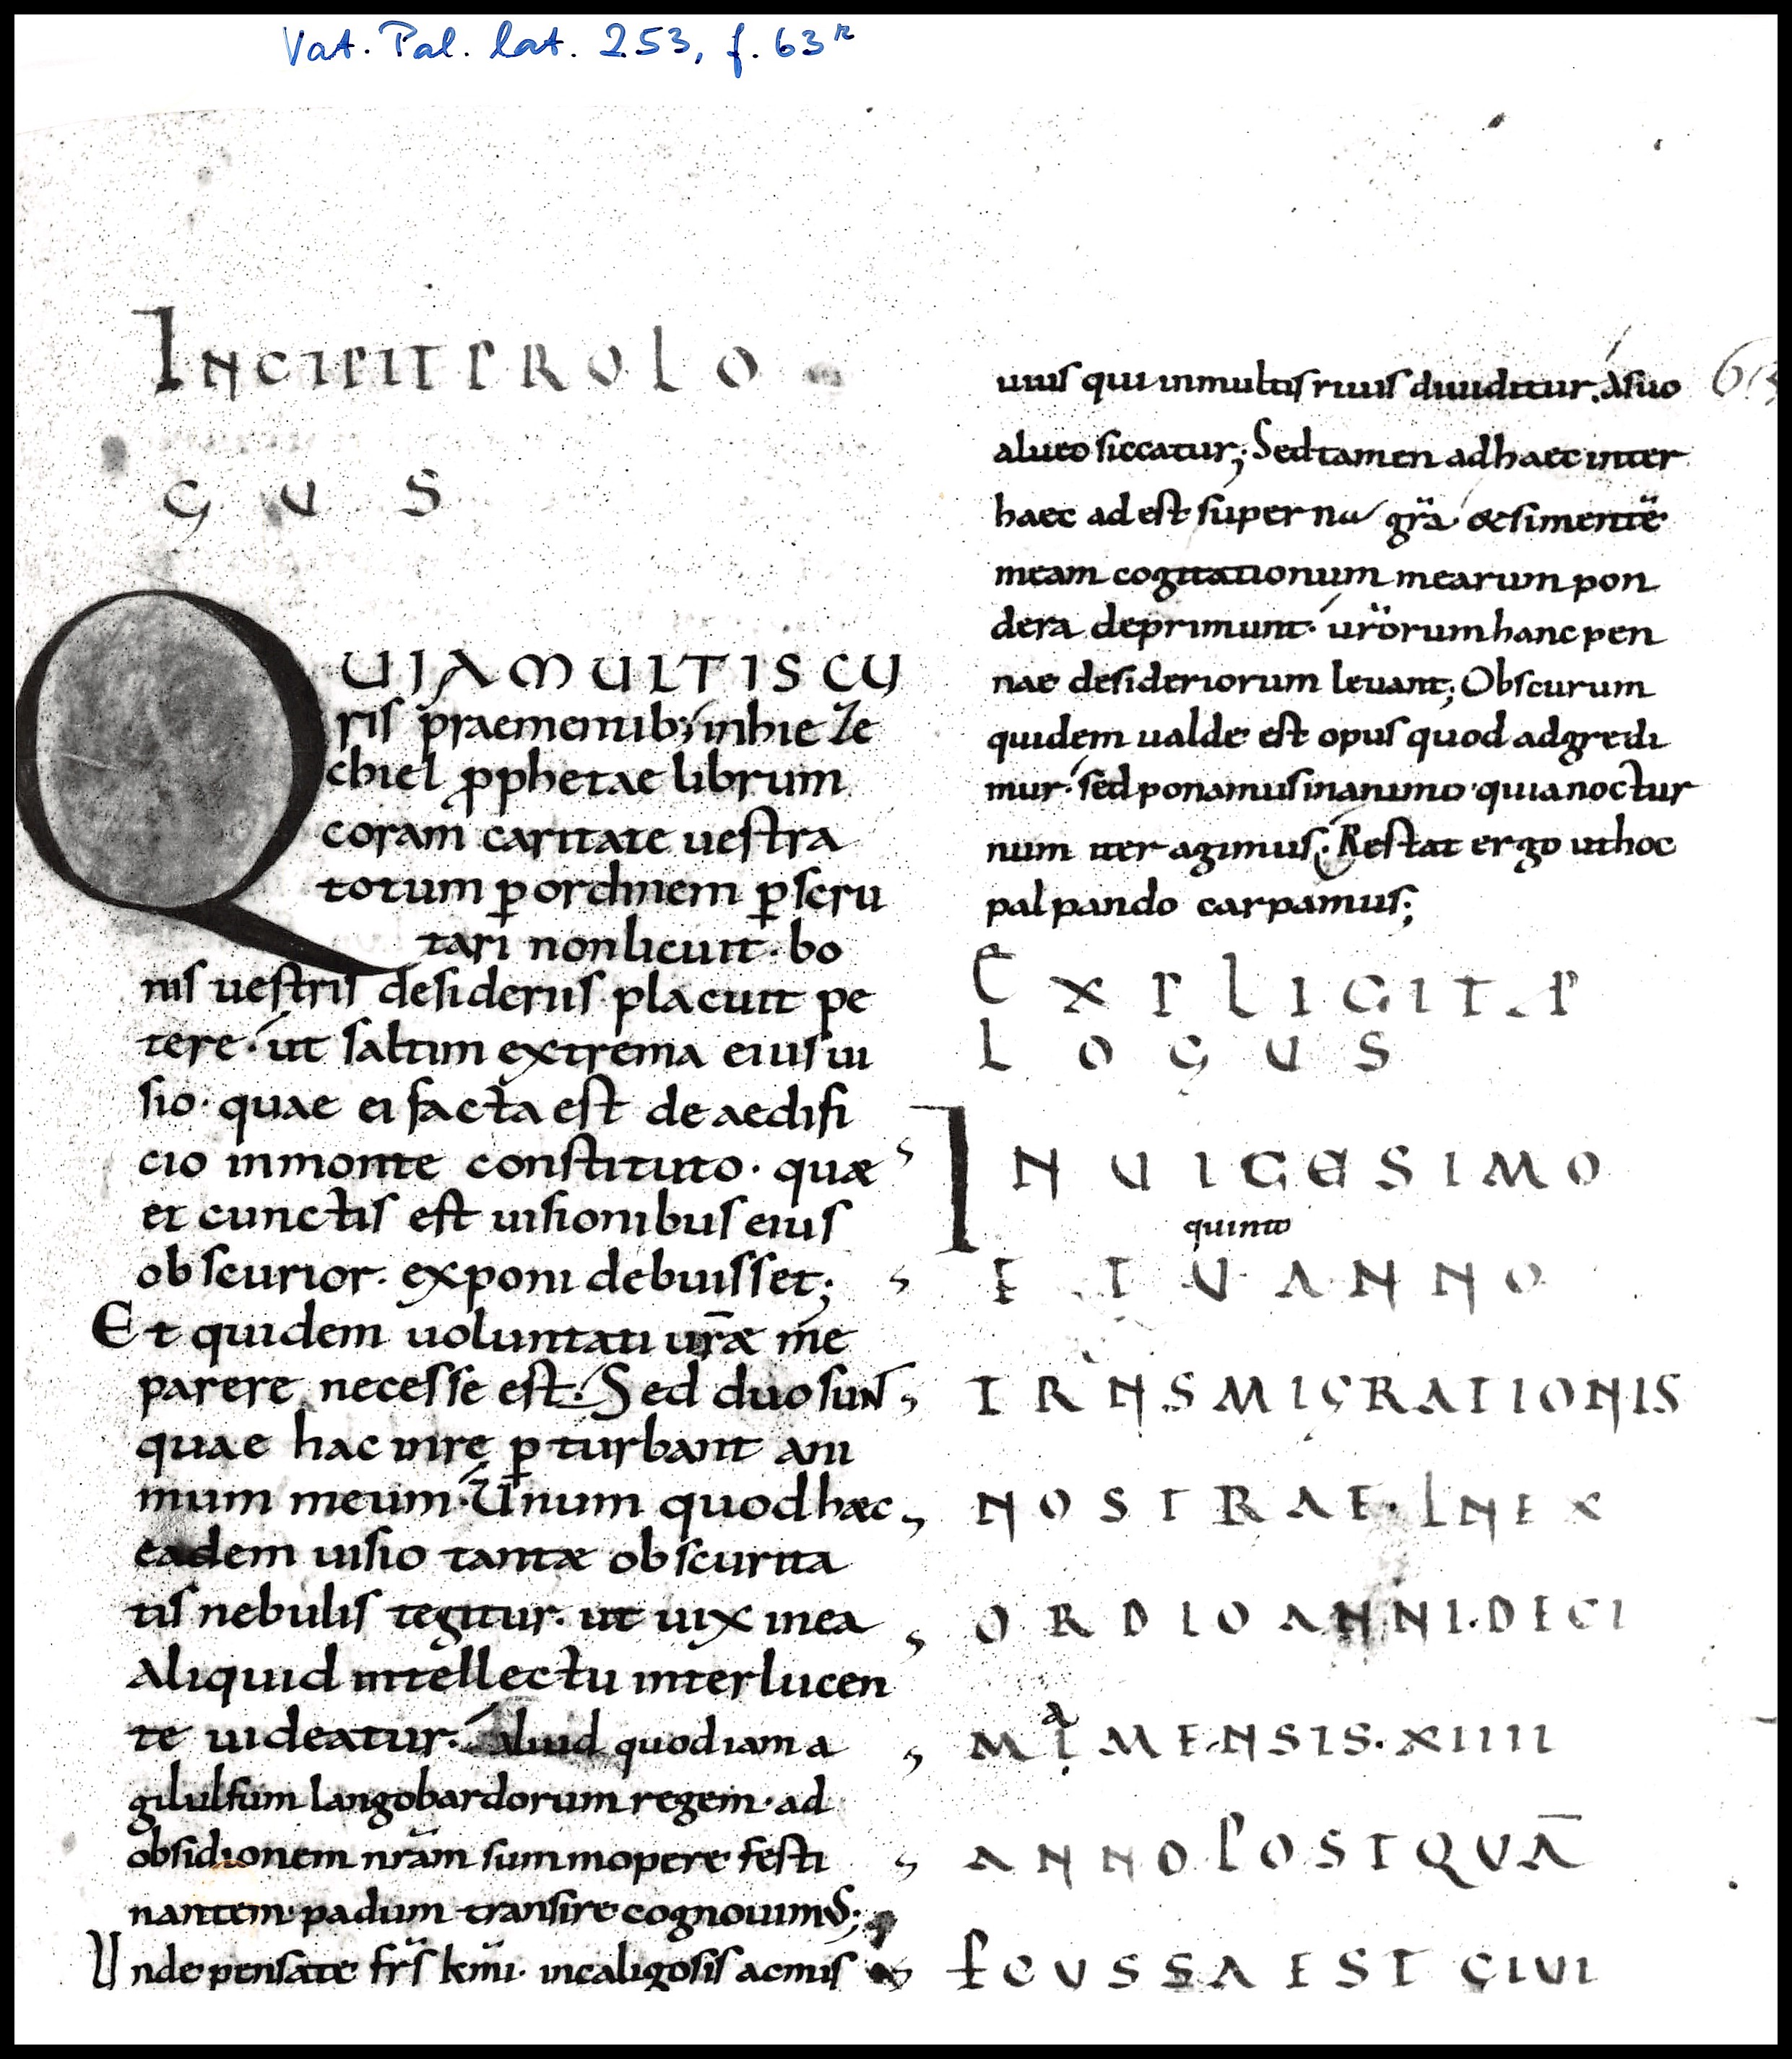 Vat. Pal. lat. 253, f. 63r
INCIPIT PROLO
GUS
QUIA MULTIS CU
ris praementib; inhieze
chiel pphetae librum
coram caritate uestra
totum p ordinem pscru
tari non licuit. bo
nis uestris desideriis placuit pe
tere. ut saltim extrema eius ui
sio. quae ei facta est de aedifi
cio inmonte constituto. quae
et cunctis est uisionibus eius
obscurior. exponi debuisset;
Et quidem uoluntati uræ me
parere necesse est. Sed duo sunt
quae hac inre pturbant ani
mum meum. Unum quod haec
eadem uisio tantæ obscurita
tis nebulis tegitur. ut uix inea
aliquid intellectu interlucen
te uideatur. aliud quod iam a
gilulfum langobardorum regem. ad
obsidionem nram summopere festi
nantem. padum transire cognouimus;
Unde pensate frs kmi. incaligosis ac mis
63
uius qui inmultis riuis diuiditur. Asuo
alueo siccatur; Sed tamen adhaec inter
haec adest superna gra & simente
meam cogitationum mearum pon
dera deprimunt. urorum hanc pen
nae desideriorum leuant; Obscurum
quidem ualde est opus quod adgredi
mur. sed ponamus inanimo. quia noctur
num iter agimus; Restat ergo ut hoc
palpando carpamus;
EXPLICIT P
LOGUS
IN UICESIMO
quinto
ET V ANNO
TRANSMIGRATIONIS
NOSTRAE. IN EX
ORDIO ANNI. DECI
a
MI MENSIS. XIIII
ANNO POSTQUĀ
PCUSSA EST CIUI